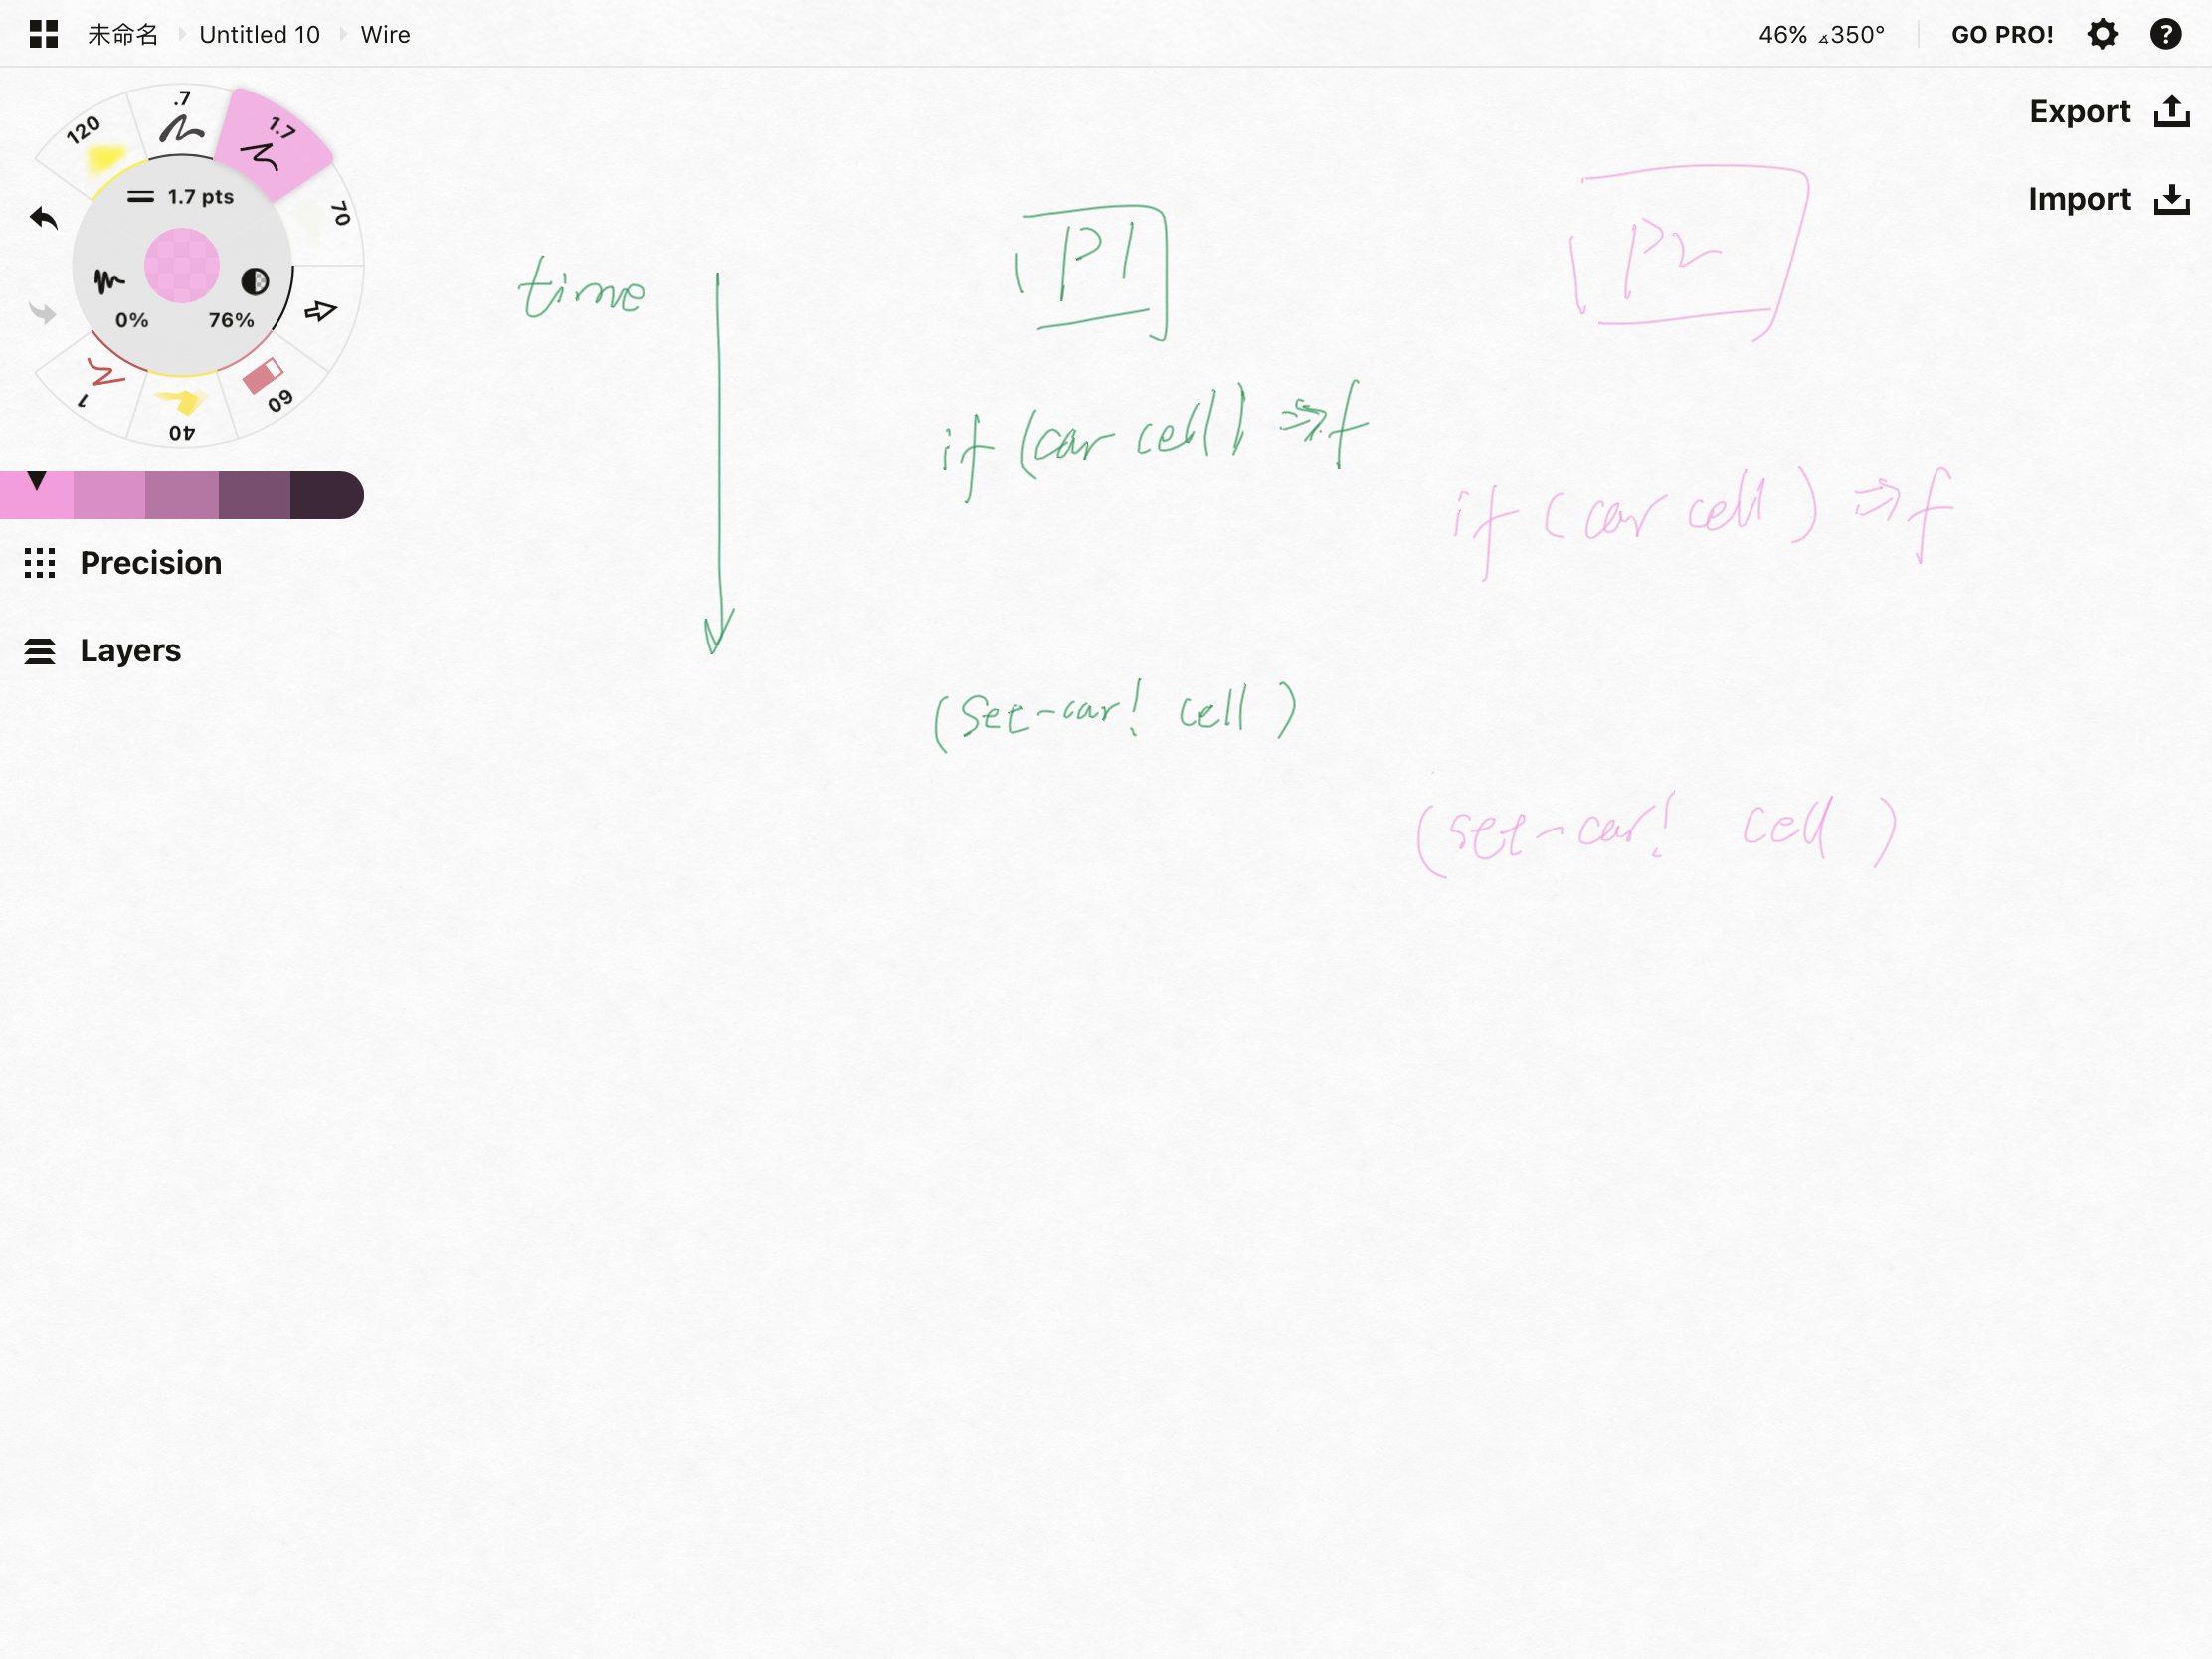 未命名 Untitled 10 Wire
46% ∡350° GO PRO! ?
Export
Import
120
.7
1.7
70
1.7 pts
0% 76%
1
40
60
Precision
Layers
time
P1
P2
if (car cell) => f
if (car cell) => f
(set-car! cell )
(set-car! cell )